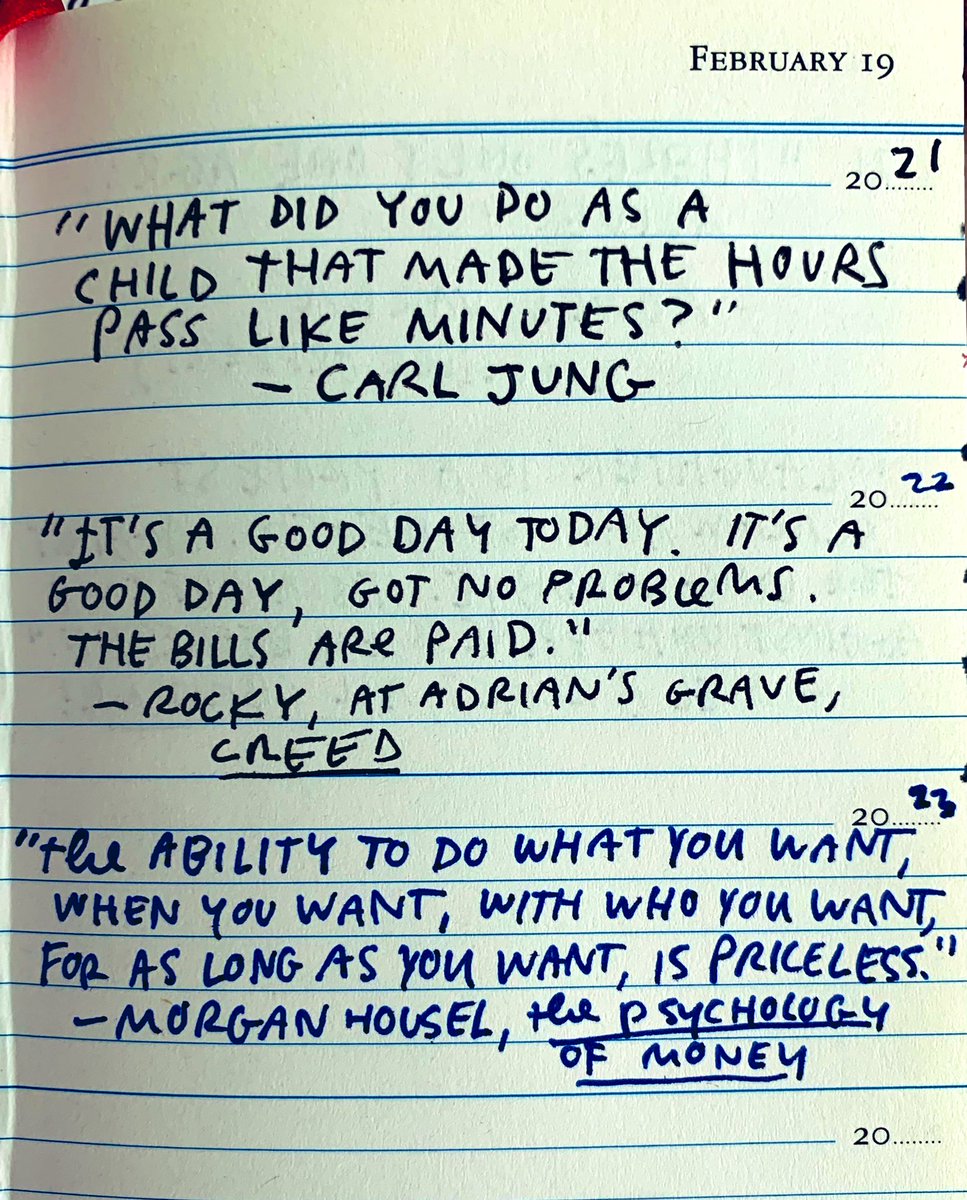 FEBRUARY 19
20........21
"WHAT DID YOU DO AS A
CHILD THAT MADE THE HOURS
PASS LIKE MINUTES?"
— CARL JUNG
20........22
"IT'S A GOOD DAY TODAY. IT'S A
GOOD DAY, GOT NO PROBLEMS.
THE BILLS ARE PAID."
— ROCKY, AT ADRIAN'S GRAVE,
CREED
20........23
"the ABILITY TO DO WHAT YOU WANT,
WHEN YOU WANT, WITH WHO YOU WANT,
FOR AS LONG AS YOU WANT, IS PRICELESS."
— MORGAN HOUSEL, the PSYCHOLOGY
OF MONEY
20........